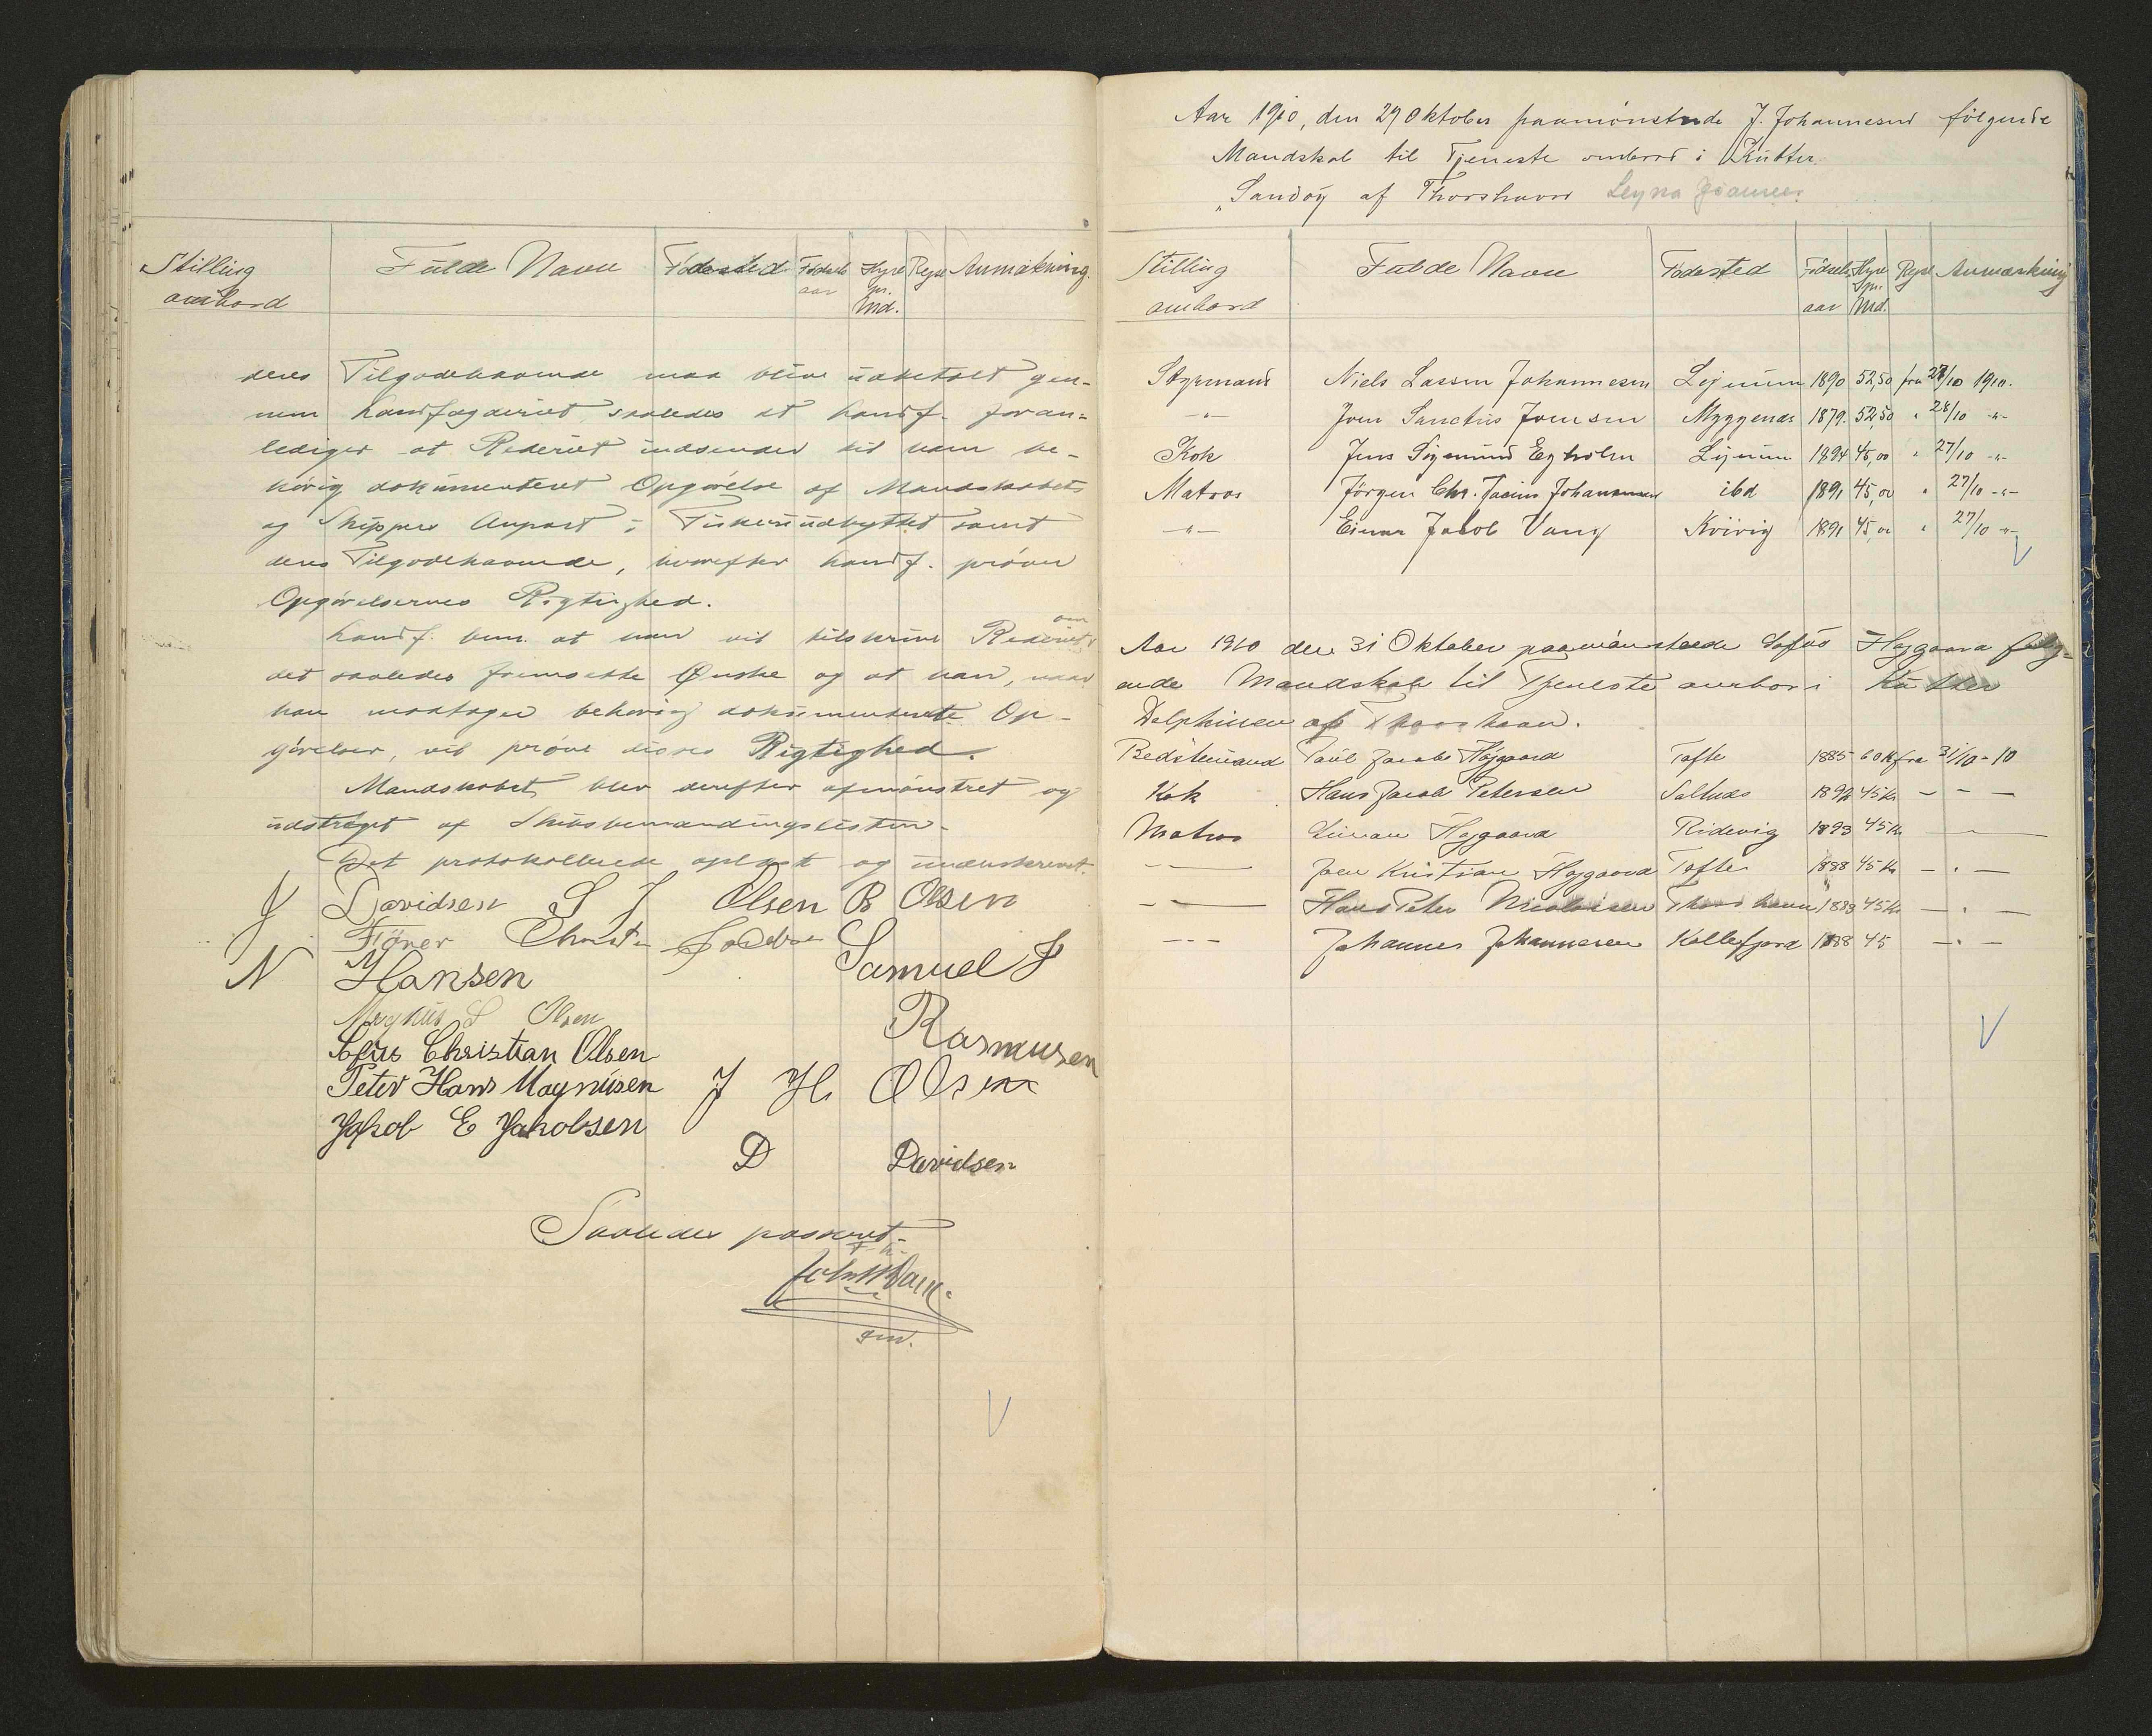 Stilling ombord | Fulde Navn | Fødested | Fødselsaar | Hyre pr. Md. | Rejse | Anmærkning.
deres Tilgodehavende maa blive udbetalt gen-
nem Landfogderiet, saaledes at Landf. foran-
lediger at Rederiet indsender til ham be-
hörig dokumenteret Opgörelse af Mandskabets
og Skippers Anpart i Fiskeriudbyttet samt
deres Tilgodehavende, hvorefter Landf. pröver
Opgörelsernes Rigtighed.
Landf. bem. at han vil tilskrive Rederiet om
det saaledes fremsatte Ønske og at han, naar
han modtager behörig dokumenterede Op-
görelser, vil pröve disses Rigtighed.
Mandskabet blev derefter afmönstret og
udströget af Skibsbemandingslisten.
Det protokollerede oplæst og underskrevet.
J Davidsen S J Olsen B Olsen
N Hansen Samuel J
Rasmusen
Magnus S Olsen
Sofus Christian Olsen
Peter Hans Magnusen J H Olsen
Jakob E Jakobsen
D Davidsen
Saaledes passeret.
Aar 1910, den 29 Oktober paamönstrede J. Johannesen fölgende
Mandskab til Tjeneste ombord i Kutter
"Sandoy af Thorshavn
Stilling ombord | Fulde Navn | Födested | Födselsaar | Hyre pr. Md. | Rejse | Anmærkning
Styrmand Niels Lassen Johannesen Lejnum 1890 52,50 fra 28/10 1910.
-"- Joen Sanctus Joensen Myggenæs 1879. 52,50 " 28/10 -"-
Kok Jens Sigmund Egholm Lejnum 1894 45,00 " 27/10 -"-
Matros Jörgen Chr. Johannesen ibd 1891 45,00 " 27/10 -"-
-"- Einar Jakob Vang Kvivig 1891 45,00 " 27/10 -"-
Aar 1910 den 31 Oktober paamönstrede Sofus Højgaard følg-
ende Mandskab til Tjeneste ombor i Kutter
Delphinen af Thorshavn.
Bedstemand Poul Jacob Højgaard Tofte 1885 60 Kr fra 31/10-10
Kok Hans Jacob Petersen Saltnæs 1892 45 Kr - - -
Matros Højgaard Ridevig 1893 45 Kr - -
- - Joen Kristian Højgaard Tofte 1888 45 Kr - . -
- - Hans Peter Nicolaisen Thorshavn 1893 45 Kr - . -
- - - Johannes Johannesen Kollefjord 1888 45 - . -